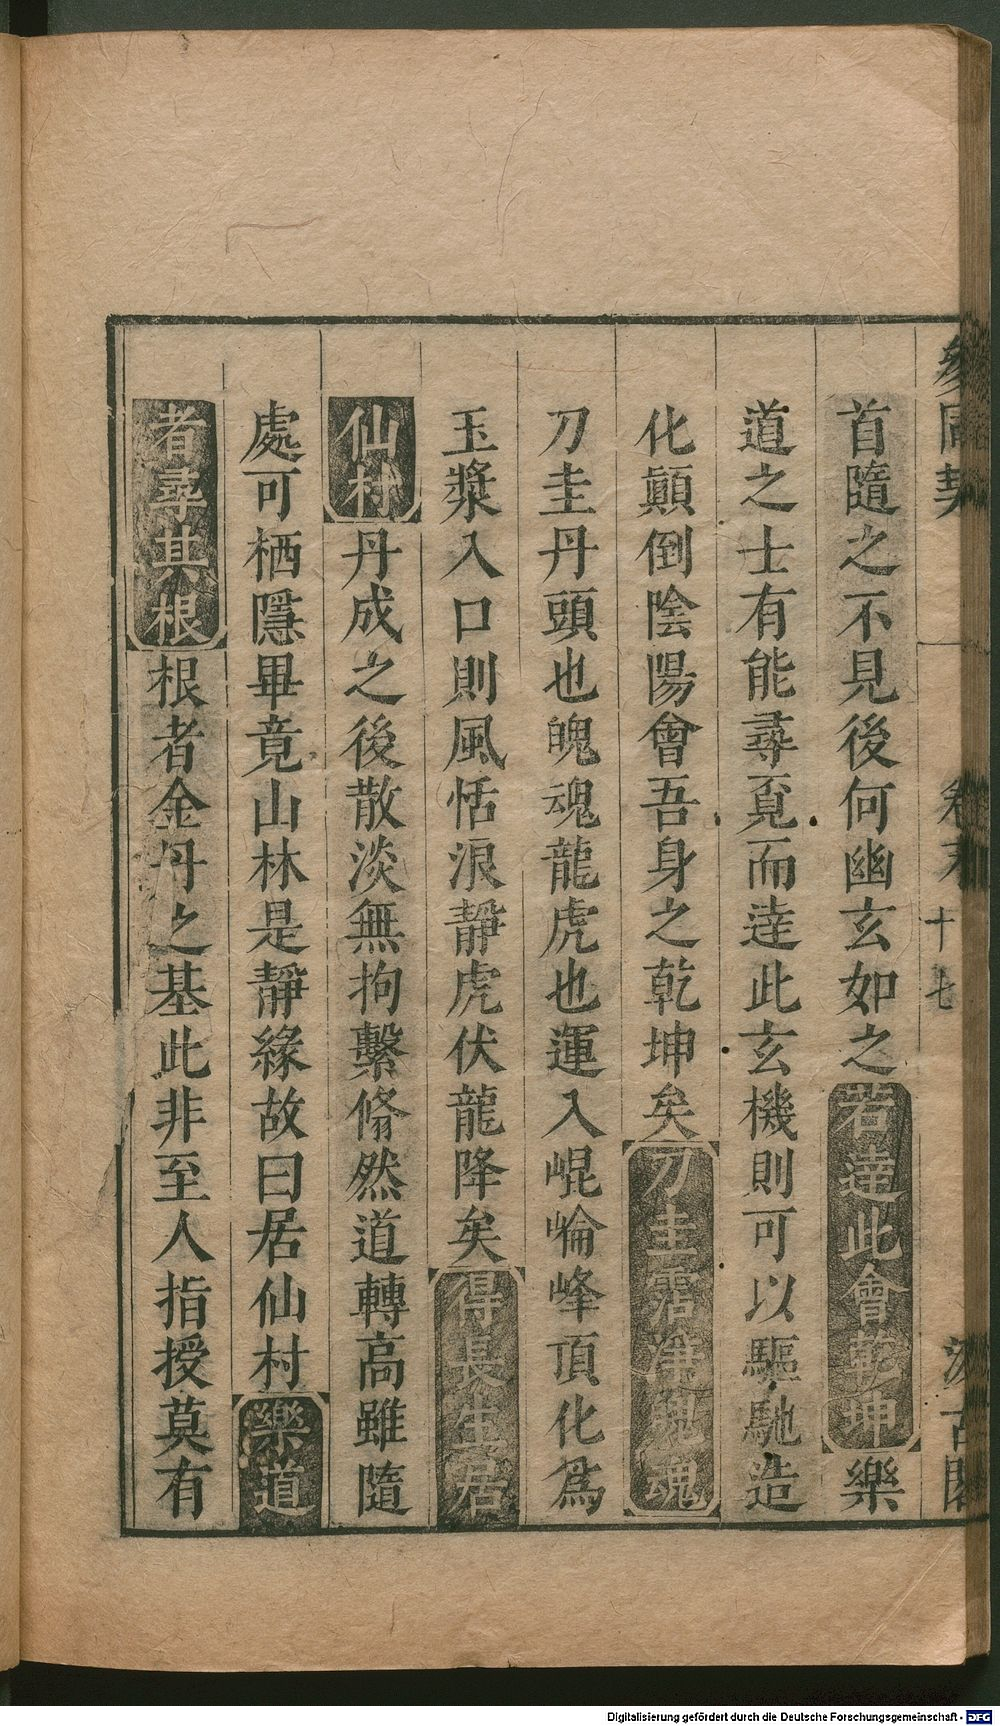 參同契 卷末 十七 汲古閣
首隨之不見後何幽玄如之若達此會乾坤樂
道之士有能尋覓而達此玄機則可以驅馳造
化顚倒陰陽會吾身之乾坤矣刀圭霑淨魄魂
刀圭丹頭也魄魂龍虎也運入崐崘峰頂化爲
玉漿入口則風恬浪靜虎伏龍降矣得長生居
仙村丹成之後散淡無拘繫翛然道轉高雖隨
處可栖隱畢竟山林是靜緣故曰居仙村樂道
者尋其根根者金丹之基此非至人指授莫有
Digitalisierung gefördert durch die Deutsche Forschungsgemeinschaft - DFG